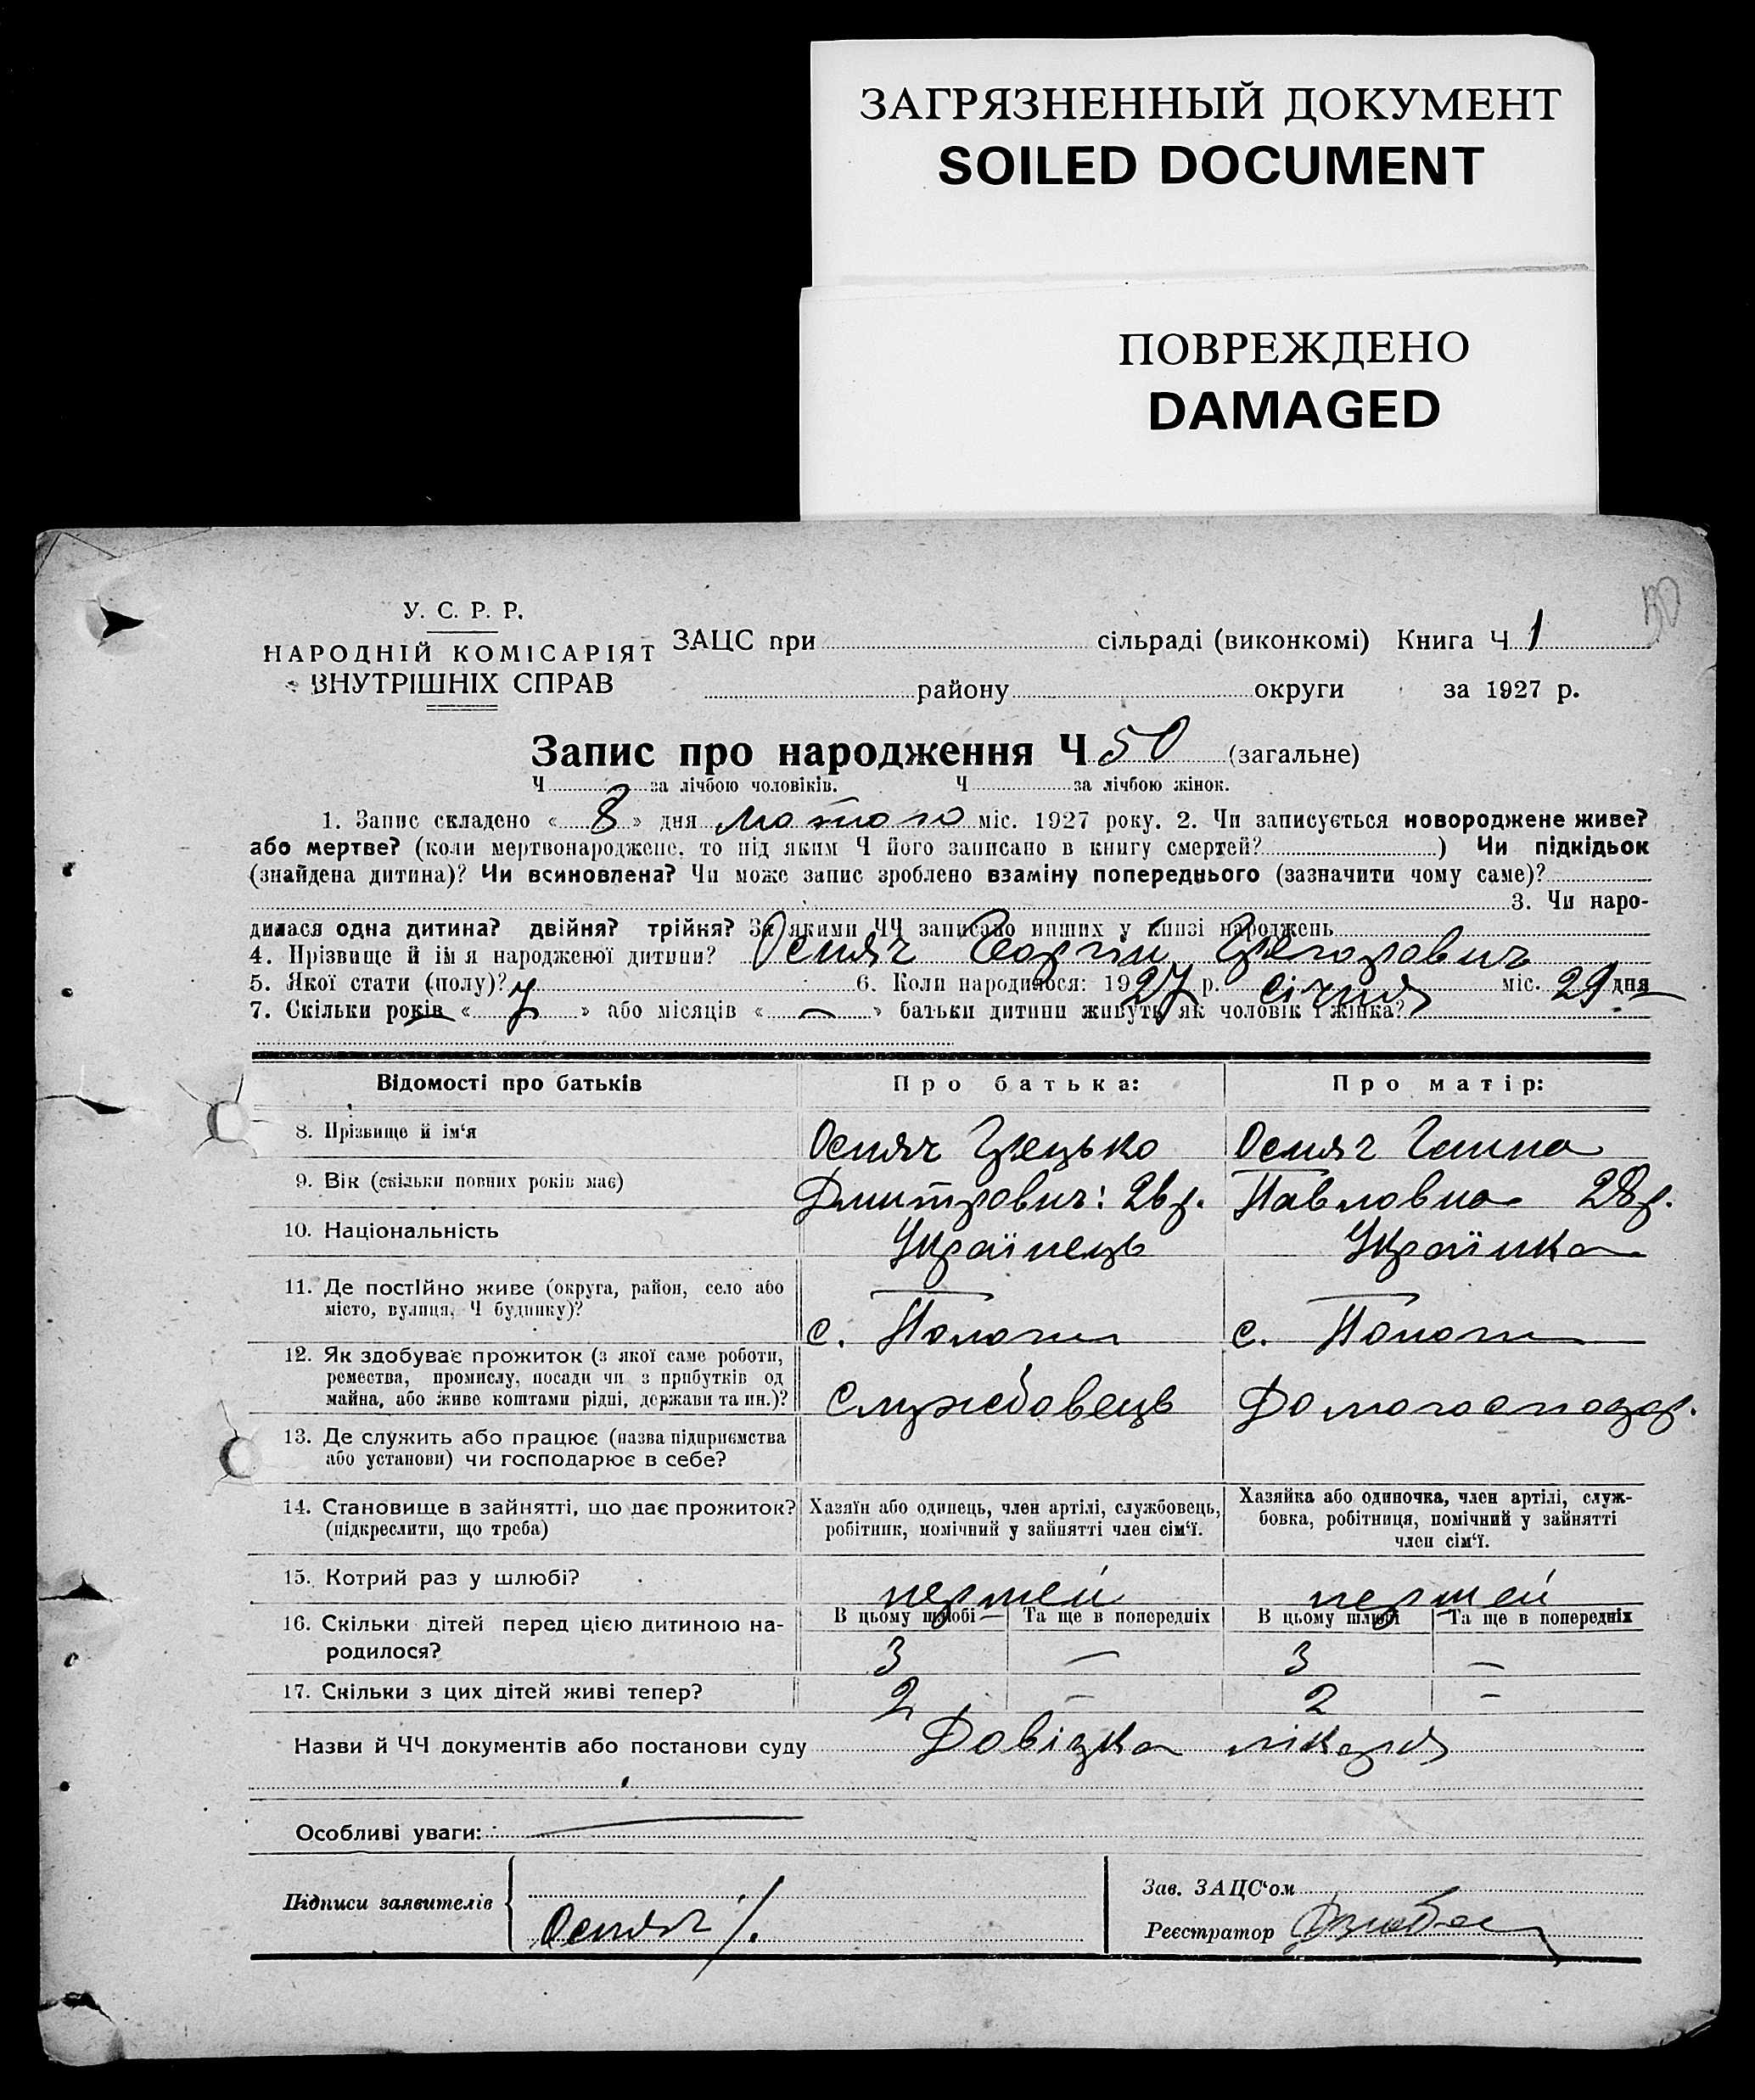 ЗАГРЯЗНЕННЫЙ ДОКУМЕНТ
SOILED DOCUMENT
ПОВРЕЖДЕНО
DAMAGED
50
У. С. Р. Р.
НАРОДНІЙ КОМІСАРІЯТ
ВНУТРІШНІХ СПРАВ
ЗАЦС при сільраді (виконкомі) Книга Ч 1
району округи за 1927 р.
Запис про народження Ч 50 (загальне)
Ч за лічбою чоловіків. Ч за лічбою жінок.
1. Запис складено « 8 » дня лютого міс. 1927 року. 2. Чи записується новороджене живе?
або мертве? (коли мертвонароджене, то під яким Ч його записано в книгу смертей? ) Чи підкідьок
(знайдена дитина)? Чи всиновлена? Чи може запис зроблено взаміну попереднього (зазначити чому саме)?
3. Чи наро-
дилася одна дитина? двійня? трійня? За якими ЧЧ записано инших у книзі народжень
4. Прізвище й ім я народженої дитини? Осмяч Григорович
5. Якої стати (полу)? ч 6. Коли народилося: 1927 р. січня міс. 29 дня
7. Скільки років « 7 » або місяців « — » батьки дитини живуть як чоловік і жінка?
Відомості про батьків Про батька: Про матір:
8. Прізвище й ім'я Осмяч Грецько Осмяч Ганна
9. Вік (скільки повних років має) Дмитрович: 26 р. Павловна 28 р.
10. Національність Українець Українка
11. Де постійно живе (округа, район, село або
місто, вулиця, Ч будинку)? с. Пологи с. Пологи
12. Як здобуває прожиток (з якої саме роботи,
ремества, промислу, посади чи з прибутків од
майна, або живе коштами рідні, держави та ин.)? Службовець Домогосподар.
13. Де служить або працює (назва підприємства
або установи) чи господарює в себе?
14. Становище в зайнятті, що дає прожиток? (підкреслити, що треба)
Хазяїн або одинець, член артілі, службовець,
робітник, помічний у зайнятті член сім'ї.
Хазяйка або одиночка, член артілі, служ-
бовка, робітниця, помічний у зайнятті
член сім'ї.
15. Котрий раз у шлюбі? першей першей
16. Скільки дітей перед цією дитиною на-
родилося?
В цьому шлюбі Та ще в попередніх В цьому шлюбі Та ще в попередніх
3 — 3 —
17. Скільки з цих дітей живі тепер? 2 — 2 —
Назви й ЧЧ документів або постанови суду Довізка лікаря
Особливі уваги:
Підписи заявителів Осмяч
Зав. ЗАЦС'ом
Реєстратор